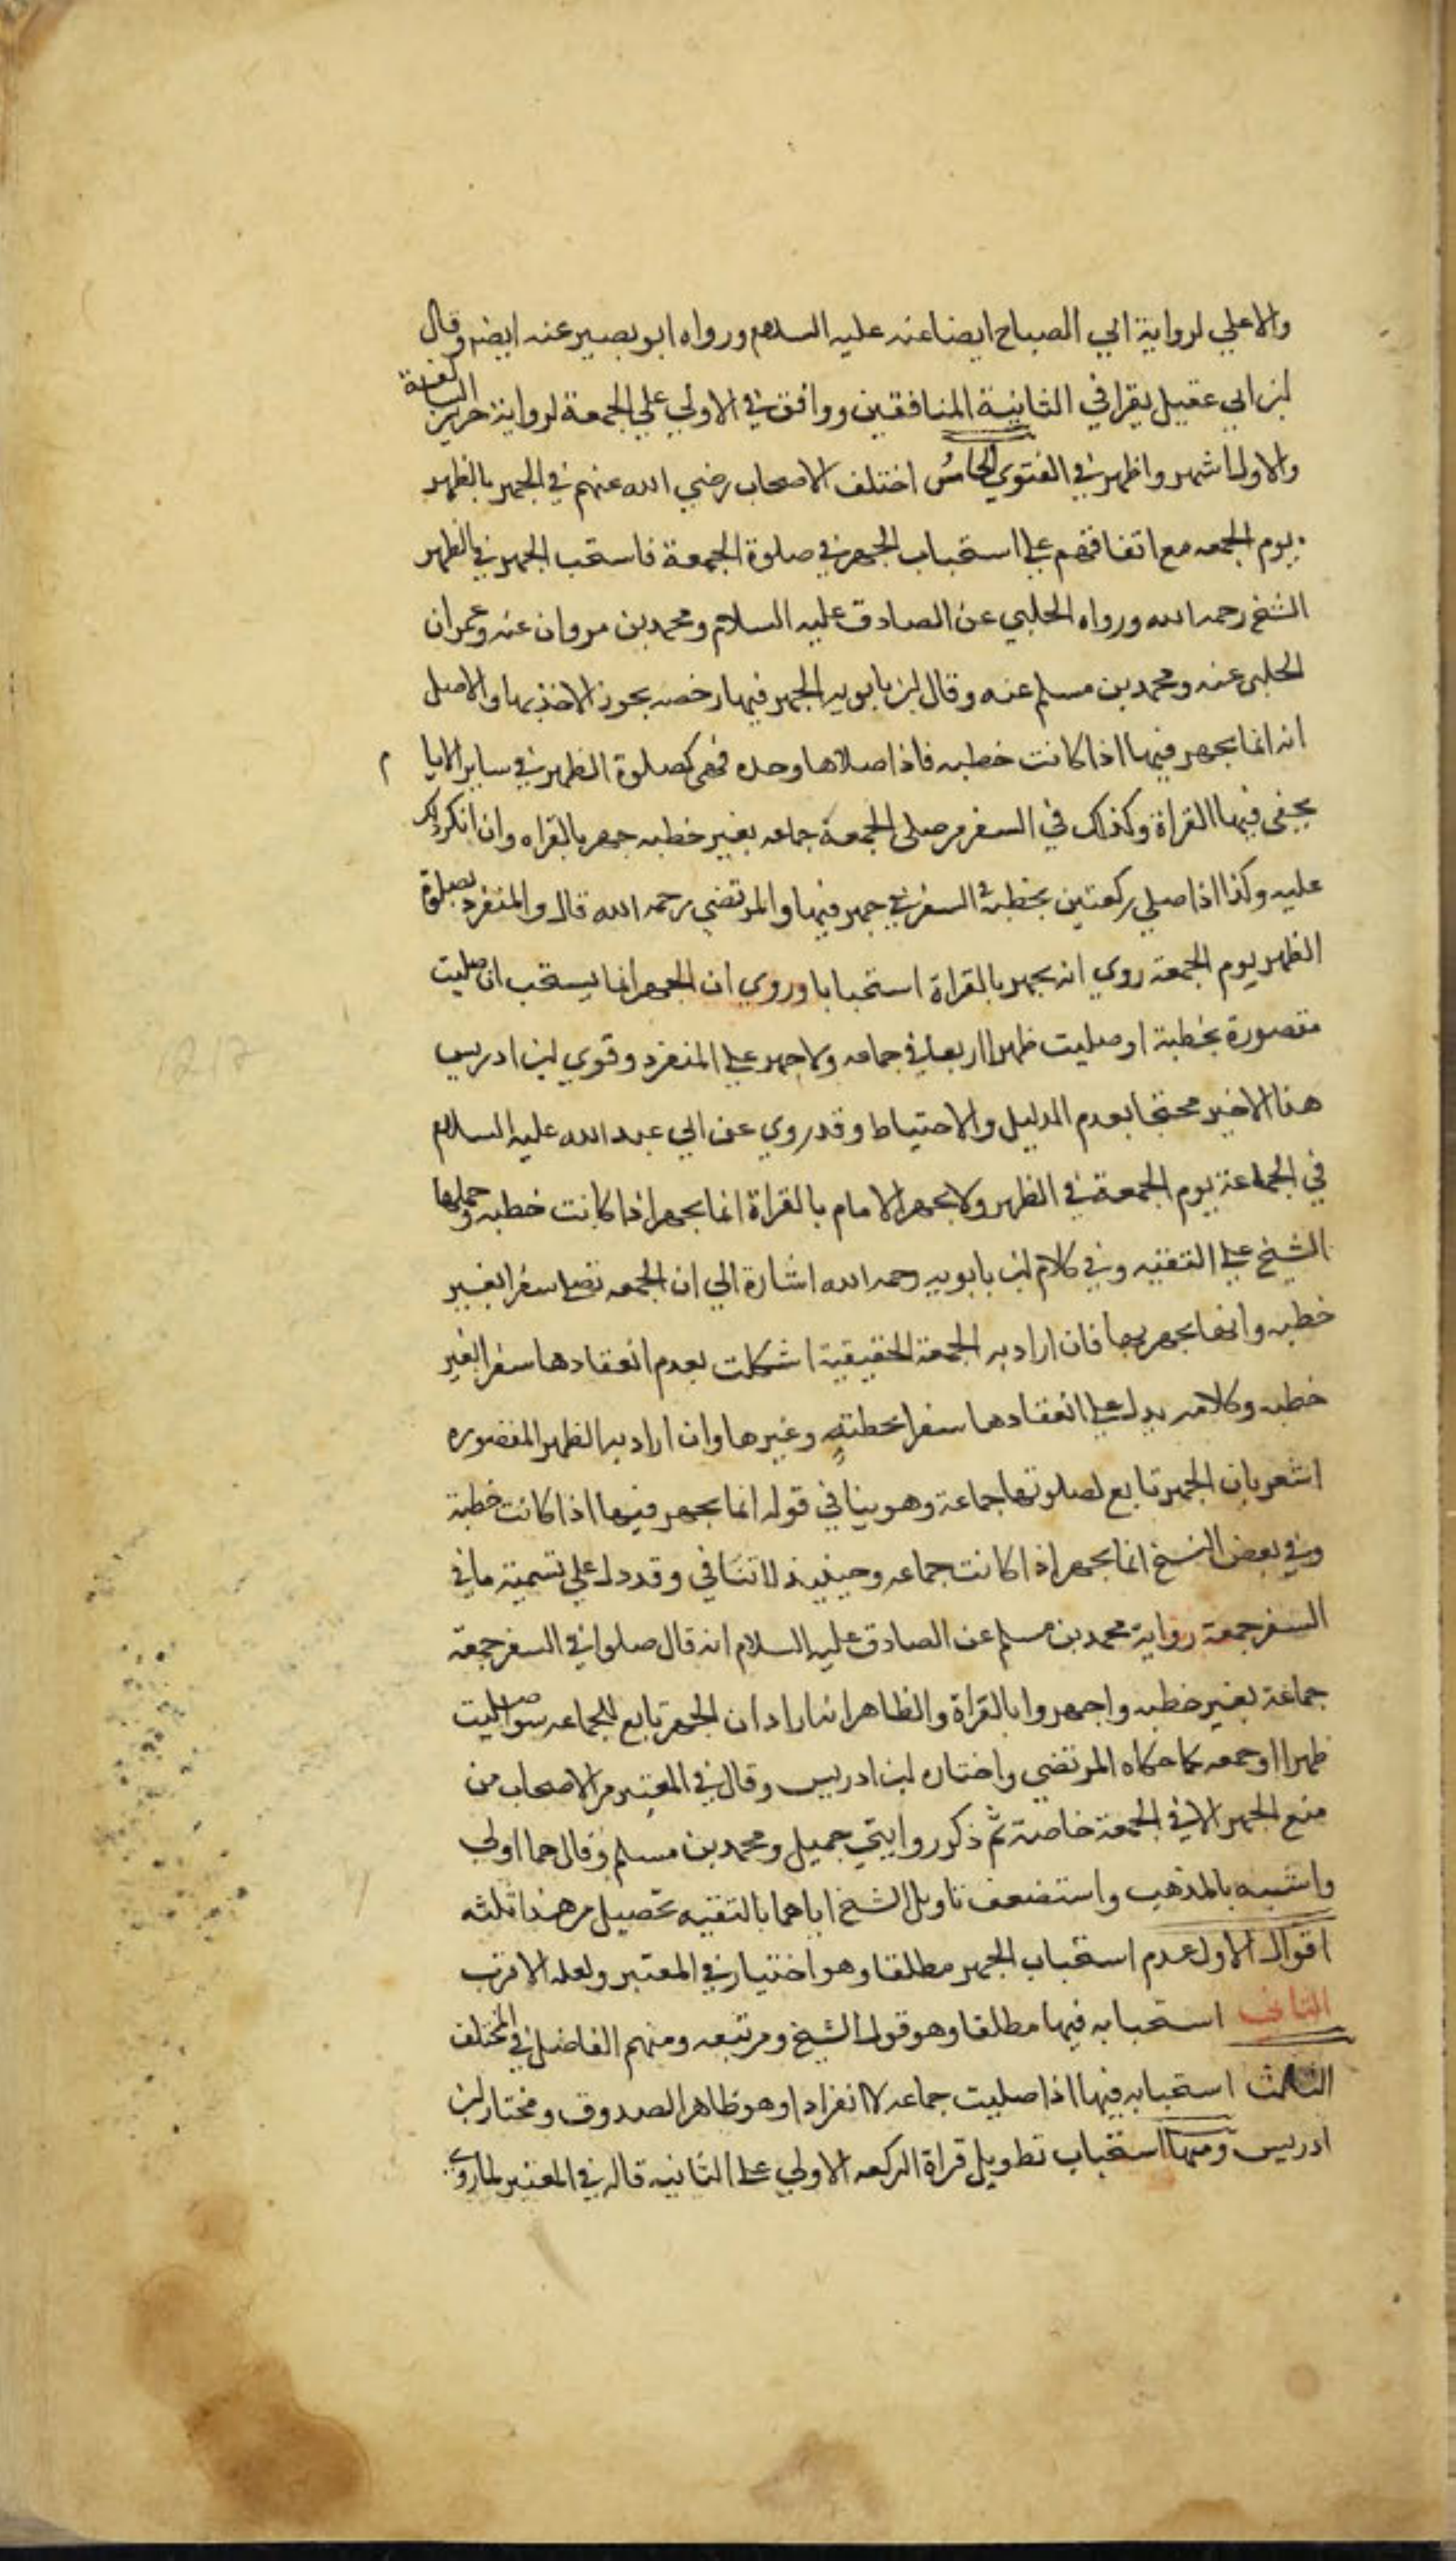 والاعلي لرواية ابي الصباح ايضا عنه عليه السلام ورواه ابو بصير عنه ايضا وقال
ابن ابي عقيل يقرا في الثانية المنافقين ووافق في الاولي علي الجمعة لرواية حريز السالفة
والاول اشهر واظهر في الفتوي الخامس اختلف الاصحاب رضي الله عنهم في الجهر بالظهر
يوم الجمعه مع اتفاقهم علي استحباب الجهر في صلوة الجمعة فاستحب الجهر في الظهر
الشيخ رحمه الله ورواه الحلبي عن الصادق عليه السلام ومحمد بن مروان عنه وعمران
الحلبي عنه ومحمد بن مسلم عنه وقال ابن بابويه الجهر فيها رخصه يجوز الاخذ بها والاصل
انه انما يجهر فيها اذا كانت خطبه فاذا صلاها وحده فهي كصلوة الظهر في ساير الايام
يخفي فيها القراة وكذلك في السفر من صلي الجمعة جماعه بغير خطبه جهر بالقراه وان انكر ذلك
عليه وكذا اذا صلي ركعتين بخطبة في السفر جهر فيها والمرتضي رحمه الله قال والمنفرد بصلوة
الظهر يوم الجمعة روي انه يجهر بالقراة استحبابا وروي ان الجهر انما يستحب ان صليت
مقصورة بخطبة او صليت ظهرا اربعا في جماعه ولا جهر علي المنفرد وقوي ابن ادريس
هذا الاخير محتجا بعدم الدليل والاحتياط وقد روي عن ابي عبد الله عليه السلام
في الجماعة يوم الجمعة في الظهر ولا يجهر الامام بالقراة انما يجهر اذا كانت خطبه وحملها
الشيخ علي التقيه وفي كلام ابن بابويه رحمه الله اشارة الي ان الجمعه تصلي سفرا بغير
خطبه وانما يجهر بها فان اراد به الجمعة الحقيقية اشكلت بعدم انعقادها سفرا بغير
خطبه وكلامه يدل علي انعقادها سفرا بخطبة وغيرها وان اراد به الظهر المقصوره
اشعر بان الجهر تابع لصلوتها جماعة وهو ينافي قوله انما يجهر فيها اذا كانت خطبة
وفي بعض النسخ انما يجهر اذا كانت جماعه وحينيذ لا تنافي وقد دل علي تسمية ما في
السفر جمعة رواية محمد بن مسلم عن الصادق عليه السلام انه قال صلوا في السفر جمعة
جماعة بغير خطبه واجهروا بالقراة والظاهر انه اراد ان الجهر تابع للجماعه سوا صليت
ظهرا او جمعه كما حكاه المرتضي واختاره ابن ادريس وقال في المعتبر من الاصحاب من
منع الجهر الا في الجمعة خاصة ثم ذكر روايتي جميل ومحمد بن مسلم وقال هما اولي
واشبه بالمذهب واستضعف تاويل الشيخ اياهما بالتقيه تحصيل من هذا ثلثه
اقوال الاول عدم استحباب الجهر مطلقا وهو اختياره في المعتبر ولعله الاقرب
الثاني استحبابه فيها مطلقا وهو قول الشيخ ومن تبعه ومنهم الفاضل في المختلف
الثالث استحبابه فيها اذا صليت جماعه لا انفرادا وهو ظاهر الصدوق ومختار ابن
ادريس ومنها استحباب تطويل قراة الركعه الاولي علي الثانيه قاله في المعتبر لما روي